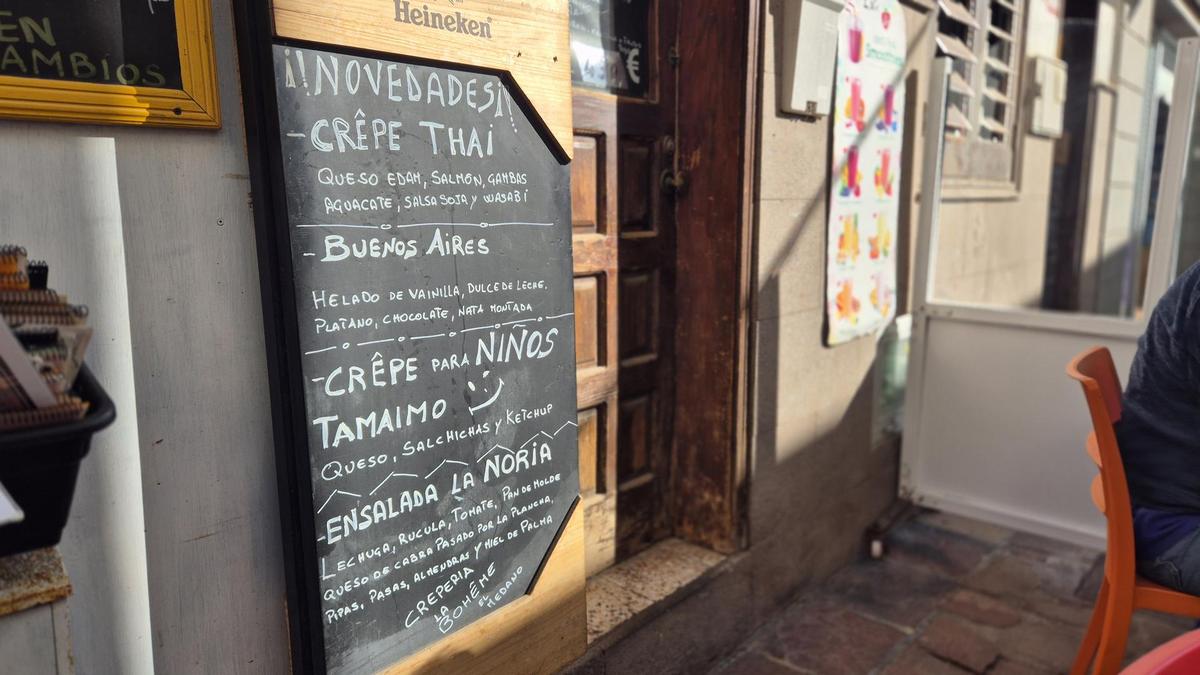 EN
AMBIOS
Heineken
¡¡NOVEDADES!!
-CRÊPE THAI
QUESO EDAM, SALMÓN, GAMBAS
AGUACATE, SALSA SOJA Y WASABI
-BUENOS AIRES
HELADO DE VAINILLA, DULCE DE LECHE,
PLATANO, CHOCOLATE, NATA MONTADA
-CRÊPE PARA NIÑOS
TAMAIMO
QUESO, SALCHICHAS Y KETCHUP
-ENSALADA LA NORIA
LECHUGA, RUCULA, TOMATE, PAN DE MOLDE
QUESO DE CABRA PASADO POR LA PLANCHA,
PIPAS, PASAS, ALMENDRAS Y MIEL DE PALMA
CREPERIA
LA BOHÊME
EL MEDANO
€
Smoothies